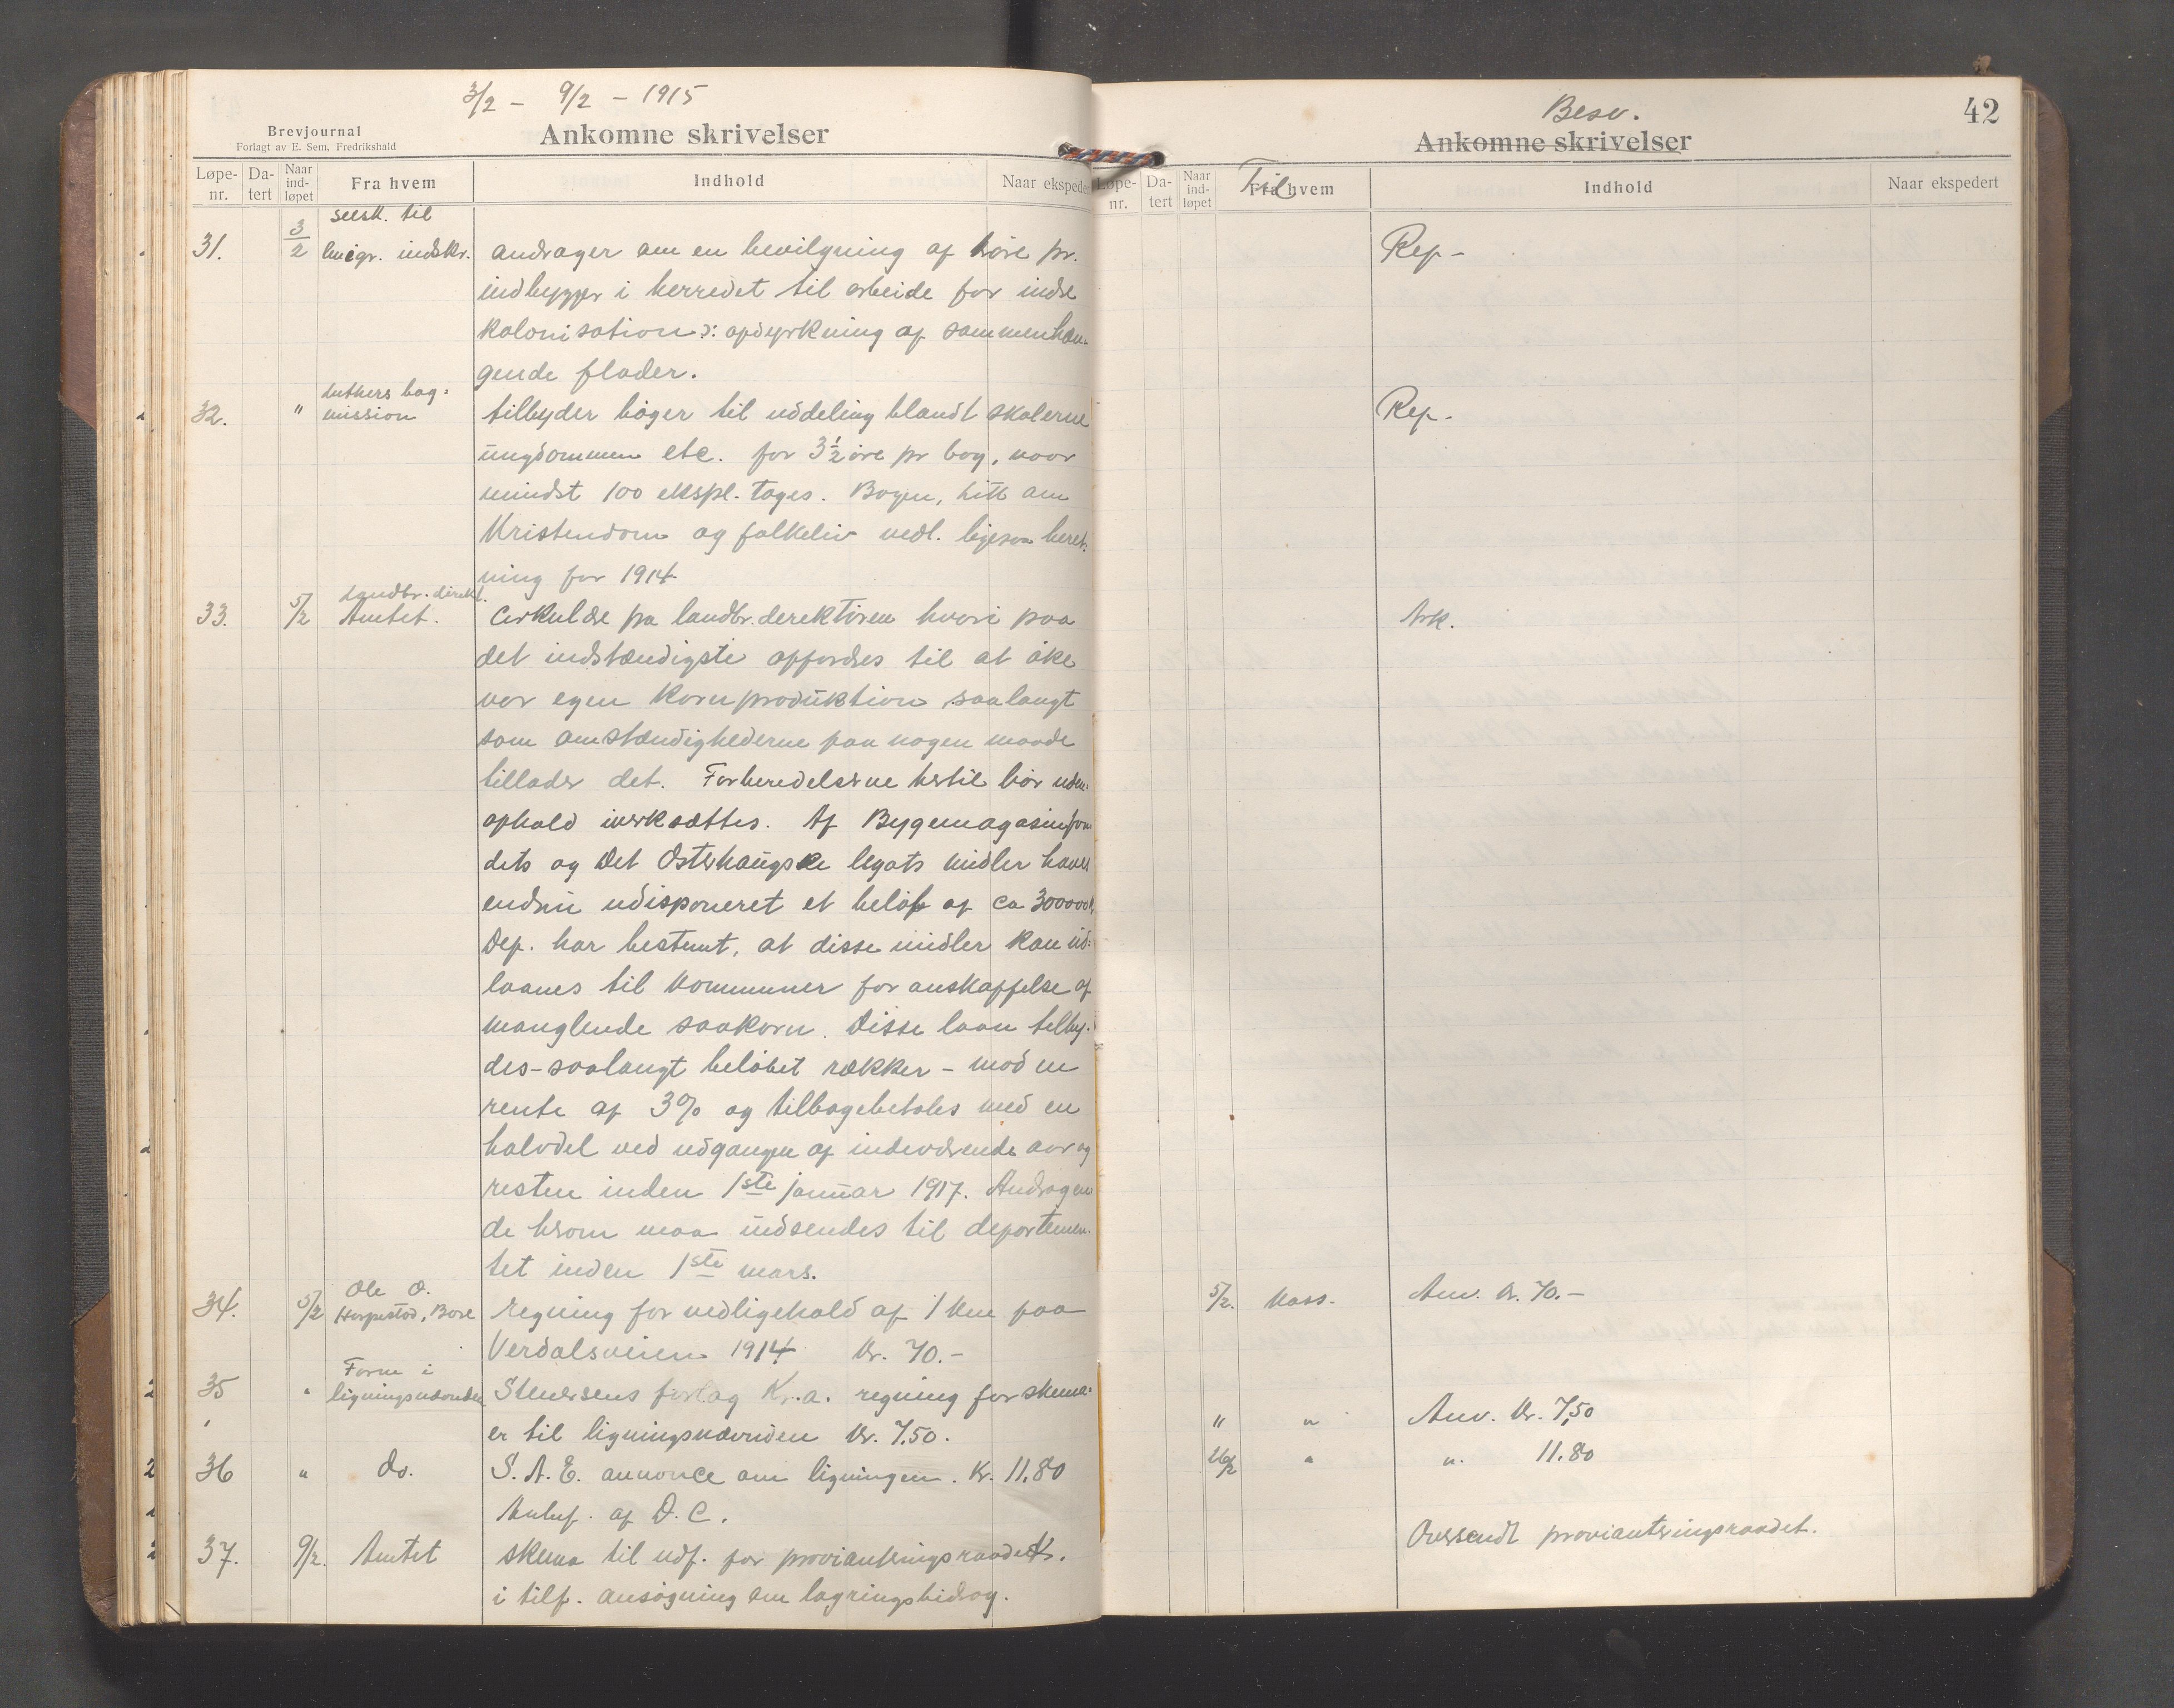 3/2 - 9/2 - 1915
Brevjournal
Forlagt av E. Sem, Fredrikshald
Ankomne skrivelser
Løpe-nr. Da-tert Naar ind-løpet Fra hvem Indhold Naar ekspedert
31. 3/2 selsk. til emigr. indskr. andrager om en bevilgning af 1 øre pr.
indbygger i herredet til arbeide for indre
kolonisation ɔ: opdyrkning af sammenhæn-
gende flader.
32. " Luthers bog= mission tilbyder bøger til uddeling blandt skolerne
ungdommen etc. for 3½ øre pr bog, naar
mindst 100 ekspl. tages. Bogen, litt om
Kristendom og folkeliv vedl. ligesaa beret-
ning for 1914
33. 5/2 Landbr. direkt. Amtet. Cirkulære fra landbr. derektøren hvori paa
det indstændigste opfordres til at øke
vor egen kornproduktion saalangt
som omstændighederne paa nogen maade
tillader det. Forberedelserne hertil bør uden=
ophold iverksættes. Af Bygemagasinfon
dets og Det Østerhaugske legats midler haves
endnu udisponeret et beløp af ca 300000 kr
Dep. har bestemt, at disse midler kan ud=
laanes til kommuner for anskaffelse af
manglende saakorn. Disse laan tilby-
des - saalangt beløbet rækker - mod en
rente af 3% og tilbagebetales med en
halvdel ved udgangen af indeværende aar og
resten inden 1ste januar 1917. Andragen
de herom maa indsendes til departemen-
tet inden 1ste mars.
34. 5/2 Ole O. Horpestad, Bore regning for vedligehold af 1 km paa
Verdalsveien 1914 Kr. 70.-
35 " Form i ligningsnævnden Stenersens forlag Kr.a. regning for skema=
er til ligningsnævnden Kr. 7.50.
36 " do. S. A. E. annonce om ligningen. Kr. 11.80
Anbef. af O. C.
37. 9/2. Amtet skema til udf. for provianteringsraadet.
i tilf. ansøgning om lagringsbidrag.
42
Besv.
Ankomne skrivelser
Løpe-nr. Da-tert Naar ind-løpet Fra hvem Til Indhold Naar ekspedert
Rep-
Rep-
Ark.
5/2. Kass. Anv. Kr. 70.-
" " Anv. Kr. 7,50
26/2 " " 11.80
Oversendt provianteringsraadet.